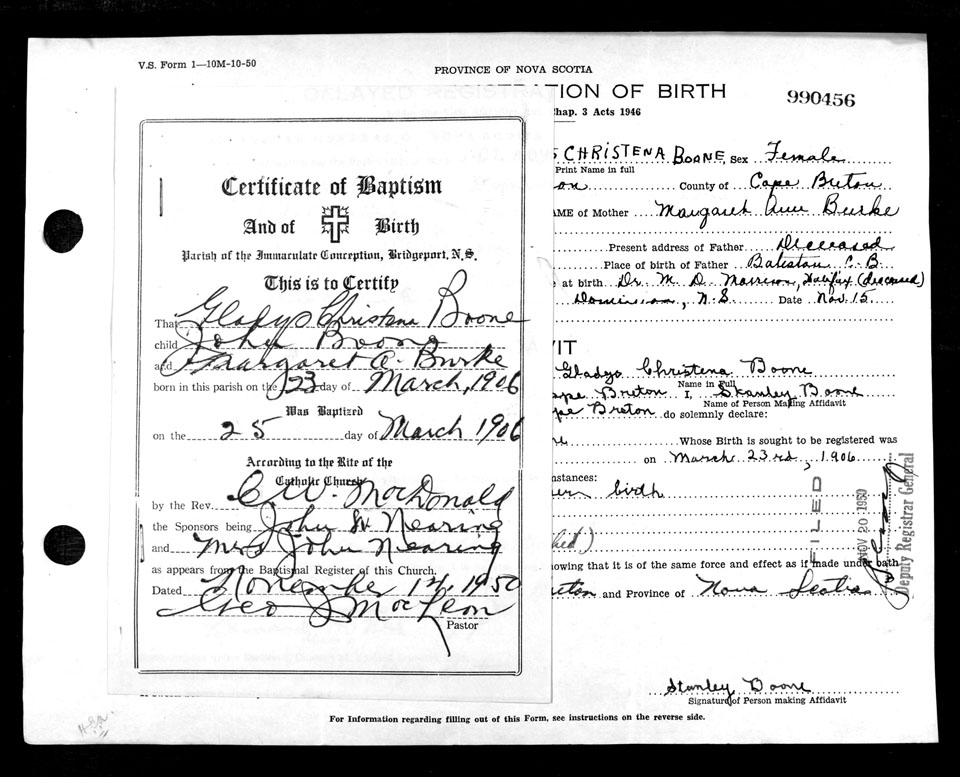 V.S. Form 1—10M-10-50
PROVINCE OF NOVA SCOTIA
DELAYED REGISTRATION OF BIRTH
Chap. 3 Acts 1946
990456
Certificate of Baptism
And of Birth
Parish of the Immaculate Conception, Bridgeport, N.S.
This is to Certify
That Gladys Christena Boone
child John Boone
and Margaret A. Burke
born in this parish on the 23 day of March, 1906
Was Baptized
on the 25 day of March 1906
According to the Rite of the
Catholic Church
by the Rev. C. W. MacDonald
the Sponsors being John W Nearing
and Mrs John Nearing
as appears from the Baptismal Register of this Church.
Dated November 14, 1950
Geo MacLean
Pastor
CHRISTENA BOONE, Sex Female
Print Name in full
on County of Cape Breton
AME of Mother Margaret Ann Burke
Present address of Father Deceased
Place of birth of Father C. B.
e at birth Dr. M. D. Morrison, Halifax (deceased)
Dominion, N. S. Date Nov. 15
VIT
Gladys Christena Boone
Name in Full
ape Breton I, Stanley Boone
Name of Person Making Affidavit
pe Breton do solemnly declare:
ne Whose Birth is sought to be registered was
on March 23rd, 1906
nstances:
birth
hed)
nowing that it is of the same force and effect as if made under oath
eton and Province of Nova Scotia
FILED
NOV 20 1950
Deputy Registrar General
Stanley Boone
Signature of Person making Affidavit
For Information regarding filling out of this Form, see instructions on the reverse side.